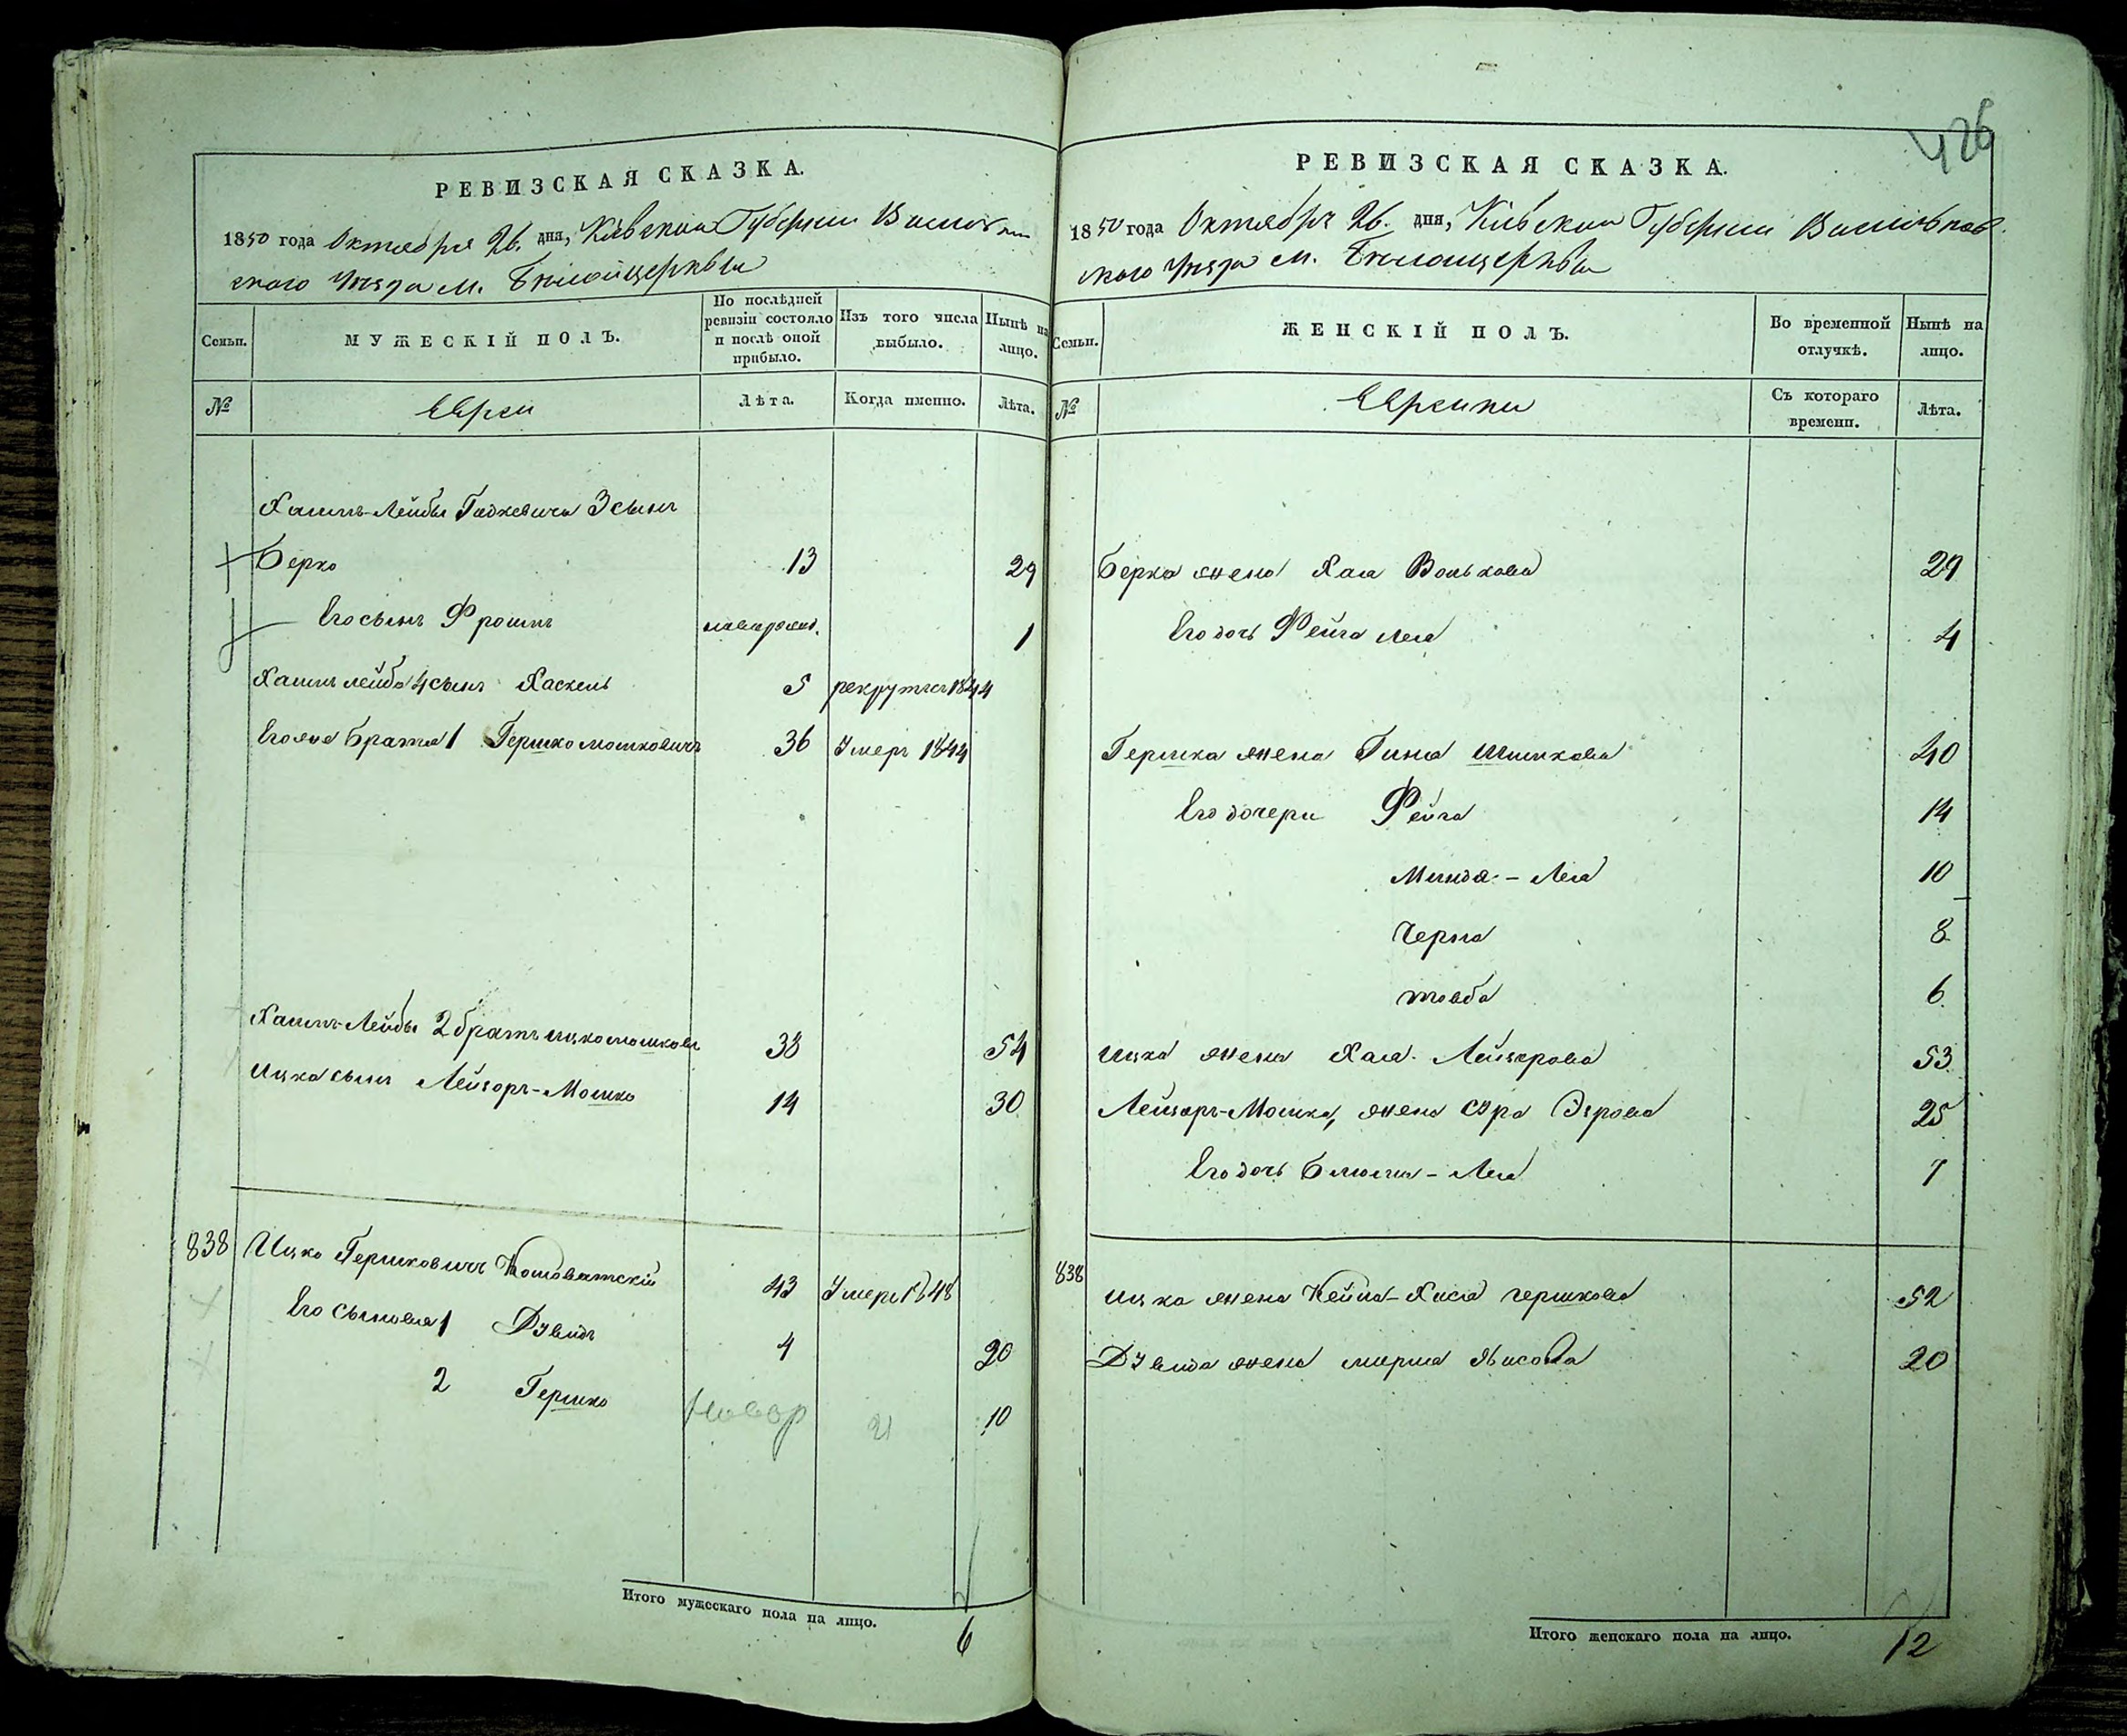 426
РЕВИЗСКАЯ СКАЗКА.
1850 года Октября 26. дня, Кіевской Губерніи Василь
ского Уезда м. Белойцеркви
Семьи.
МУЖЕСКІЙ ПОЛЪ.
По послѣдней ревизіи состояло и послѣ оной прибыло.
Изъ того числа выбыло.
Нынѣ на лицо.
№
Евреи
Лѣта.
Когда именно.
Лѣта.
Хаимъ-Лейбы 3 сынъ
Берко 13 29
Его сынъ Фроимъ новорожд. 1
Хаимъ лейба 4 сынъ Хаскель 5 рекрутъ 1844
Его же братья 1 Гершко мошковичъ 36 Умеръ 1844
Хаимъ-Лейбы 2 братъ ицко мошкови 38 54
Ицка сынъ Лейзоръ-Мошко 14 30
838 Ицко Гершковичъ 43 Умеръ 1848
Его сыновья 1 Дувидъ 4 20
2 Гершко новор 10
Итого мужескаго пола на лицо. 6
РЕВИЗСКАЯ СКАЗКА.
1850 года Октября 26. дня, Кіевской Губерніи Васильков
ского Уезда м. Белойцеркви
Семьи.
ЖЕНСКІЙ ПОЛЪ.
Во временной отлучкѣ.
Нынѣ на лицо.
№
Еврейки
Съ котораго времени.
Лѣта.
Берка жена Хая Волькова 29
Его дочь Фейга Лея 4
Гершка жена Гина Шимкова 40
Его дочери Фейга 14
Минда - Лея 10
Черна 8
товба 6
Ицка жена Хая Лейзерова 53
Лейзоръ-Мошка, жена Сура 25
Его дочь Блюма - Лея 7
838 Ицка жена Хася гершкова 52
Дувида жена 20
Итого женскаго пола на лицо. 12